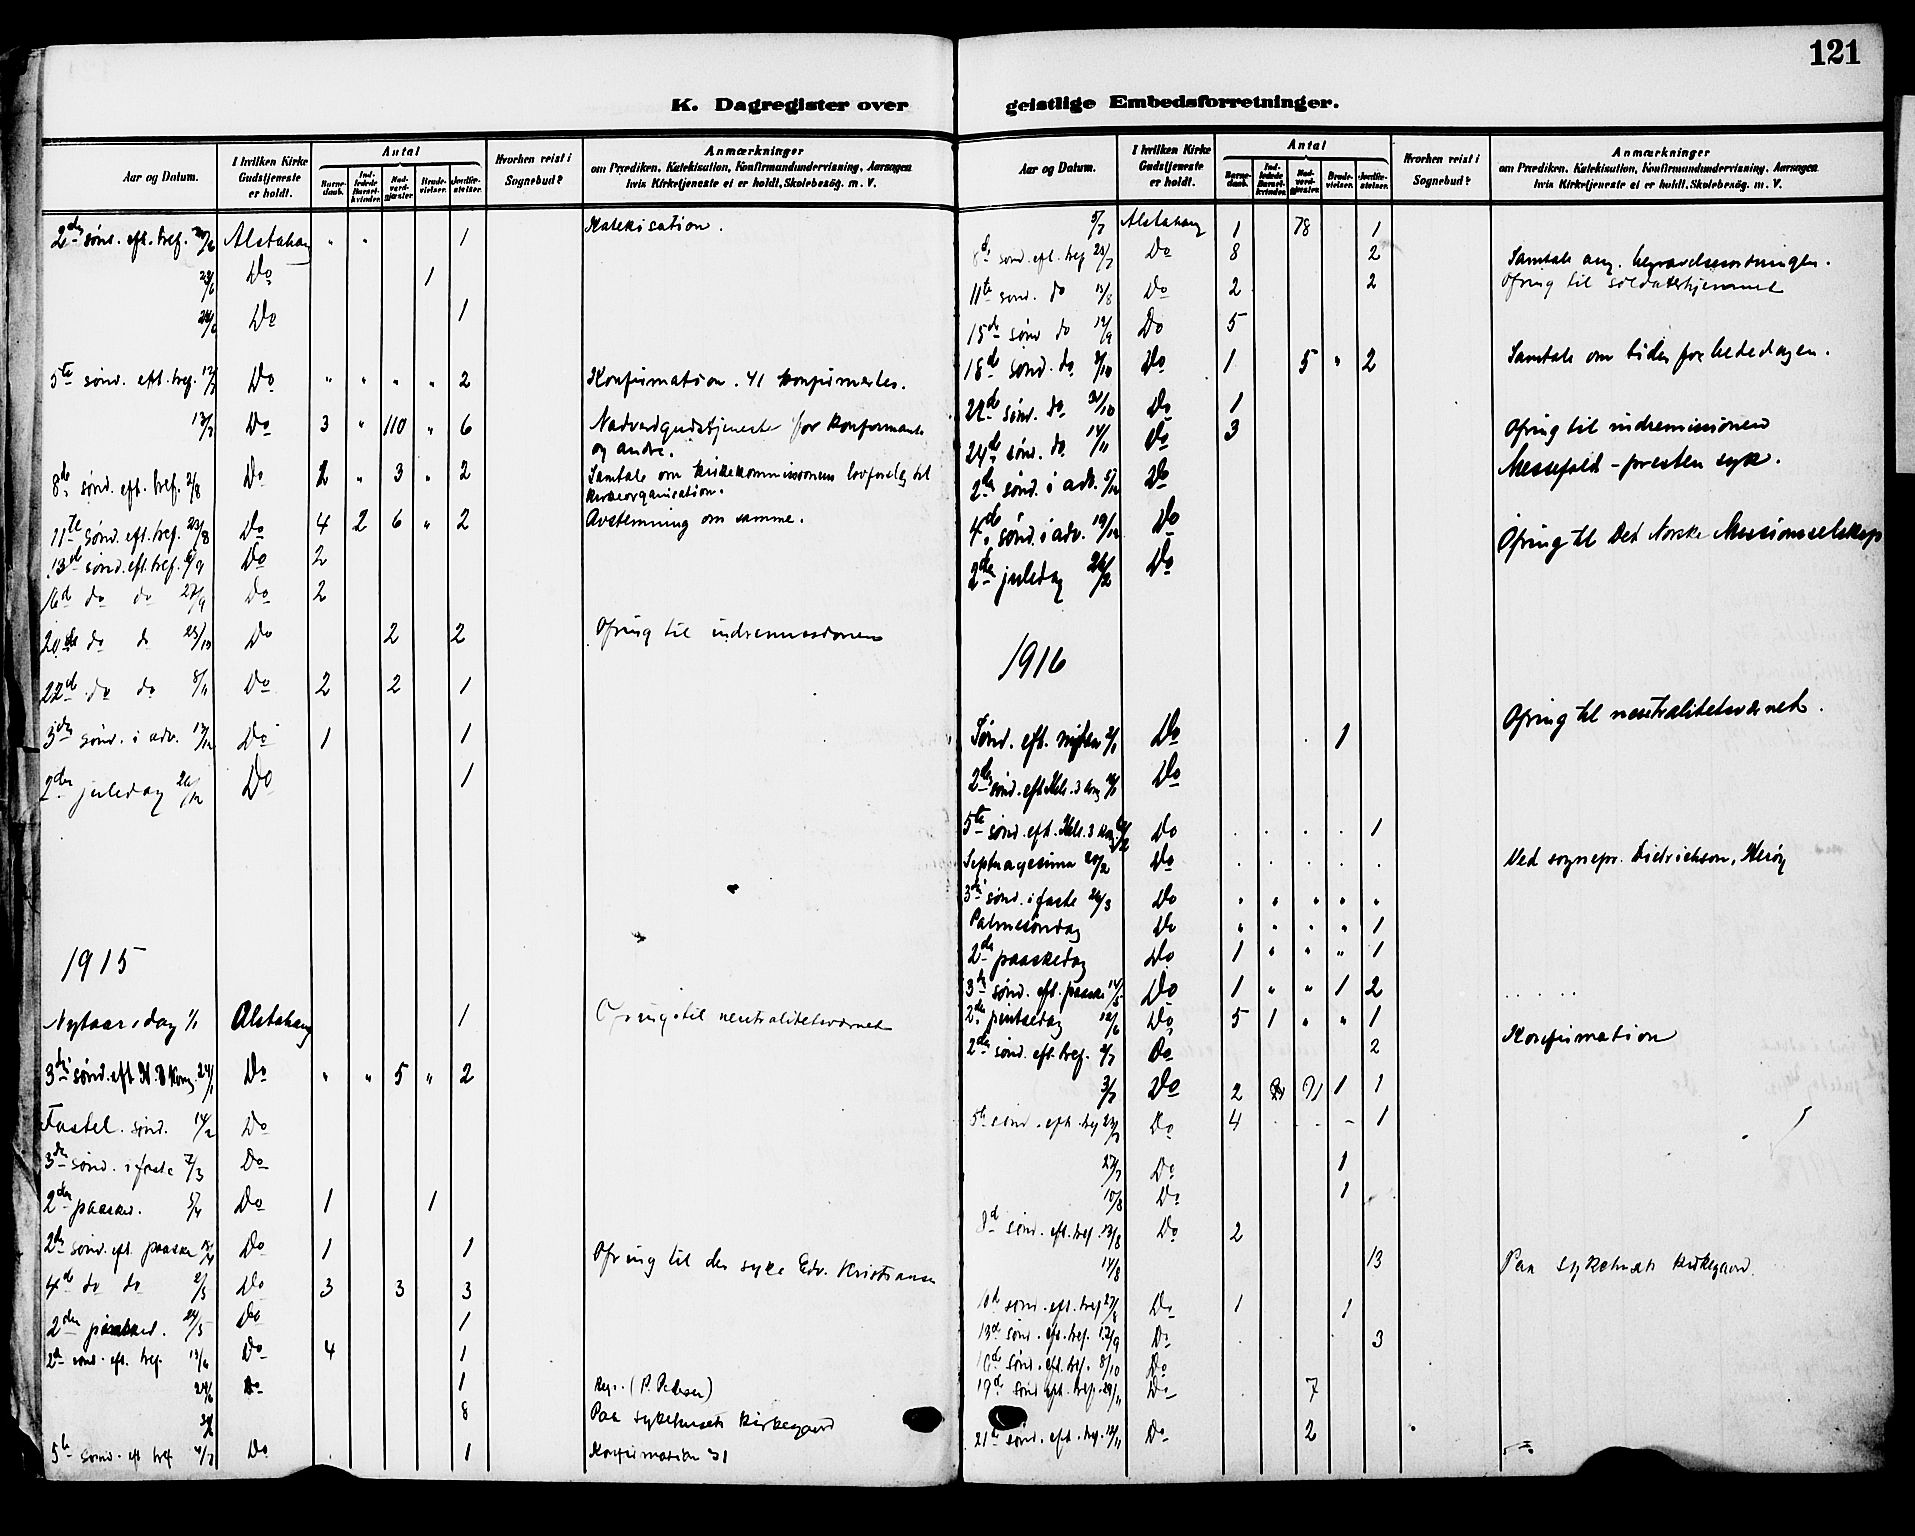 121
K. Dagregister over geistlige Embedsforretninger.
Aar og Datum. I hvilken Kirke Gudstjeneste er holdt. Antal Barnedaab. Indledede Barselkvinder. Nadverdgjæster. Brudevielser. Jordfæstelser. Hvorhen reist i Sognebud? Anmærkninger om Prædiken, Katekisation, Konfirmandundervisning, Aarsagen hvis Kirketjeneste ei er holdt, Skolebesög. m. V.
2den sønd. eft. tref. 21/6 Alstahaug " " 1 Katekisation.
Do 1
Do 1
5te sønd. eft. tref. 12/7 Do " " " " 2 Konfirmation. 41 konfirmertes.
13/7 Do 3 " 110 " 6 Nadverdgudstjeneste for konfirmante
og andre.
8de sønd. eft. tref. 2/8 Do 2 " 3 " 2 Samtale om kirkekommissionens lovforslag til
kirkeorganisation.
11te sønd. eft. tref. 23/8 Do 4 2 6 " 2 Avstemning om samme.
13de sønd. eft. tref. 6/9 Do 2
16d do do 27/9 Do 2
20de do do 25/10 Do 2 2 Ofring til indremissionen
22d do do 8/11 Do 2 2 1
3die sønd. i adv. 13/12 Do 1 1
2den juledag 26/12 Do 1
1915
Nytaarsdag 1/1 Alstahaug 1 Ofring til neutralitetsværnet
3die sønd. eft. H. 3 Kong. 24/1 Do " " 5 " 2
Fastel. sønd. 14/2 Do
3die sønd. i faste 7/3 Do
2den paasked. 5/4 Do 1 1
2den sønd. eft. paaske 18/4 Do 1 1
4de do do 2/5 Do 3 3 3 Ofring til den syke Edv. Kristiansen
2den pinsed. 24/5 Do 1
2d sønd. eft. tref. 13/6 Do 4 1
24/6 Do 1 (P. Pedersen)
8 Paa sykehusets kirkegaard
5te sønd. eft tref 4/7 Do 1 Konfirmation 31
Aar og Datum. I hvilken Kirke Gudstjeneste er holdt. Antal Barnedaab. Indledede Barselkvinder. Nadverdgjæster. Brudevielser. Jordfæstelser. Hvorhen reist i Sognebud? Anmærkninger om Prædiken, Katekisation, Konfirmandundervisning, Aarsagen hvis Kirketjeneste ei er holdt, Skolebesög. m. V.
5/7 Alstahaug 1 78 1
8d sønd. eft. tref 25/7 Do 8 2 Samtale ang. begravelsesordningen.
11te sønd. do 15/8 Do 2 2 Ofring til soldaterhjemmet
15de sønd do 12/9 Do 5
18de sønd. do 3/10 Do 1 5 " 2 Samtale om tider for bededagen.
22de sønd. do 31/10 Do 1
24de sønd. do 14/11 Do 3 Ofring til indremissionen
2den sønd. i adv. 5/12 Do Messefald - presten syk.
4de sønd. i adv. 19/12 Do Ofring til Det Norske Missionsselskap
2den juledag 26/12 Do
1916
Sønd. eft. nytaar 2/1 Do 1 Ofring til neutralitetsværnet.
2den sønd. eft. Hel. 3 kong Do
5te sønd. eft. Hel. 3 kong. Do 1
Septuagesima 20/2 Do Ved sognepr. Didrichsen, Herøy
3die sønd. i faste 26/3 Do " " " " "
Palmesøndag Do " " " " 1
2den paaskedag Do 1 " " " 1
3die sønd. eft. paaske 14/5 Do 1 " " 1 2
2den pintsedag 12/6 Do 5 1 " " 1
2den sønd. eft. tref. 2/7 Do 2 Konfirmation
3/7 Do 2 71 1 1
5te sønd. eft. tref 23/7 Do 4 1
27/7 Do 1
10/8 Do 1
8d sønd. eft. tref. 13/8 Do 2
14/8 13 Paa sykehusets kirkegaard.
10de sønd. eft. tref 27/8 Do 1 1
13de sønd. eft. tref. Do 3
16de sønd. eft. tref. 8/10 Do
19de sønd. eft. tref. Do 7
21de sønd. eft. tref. 12/11 Do 2